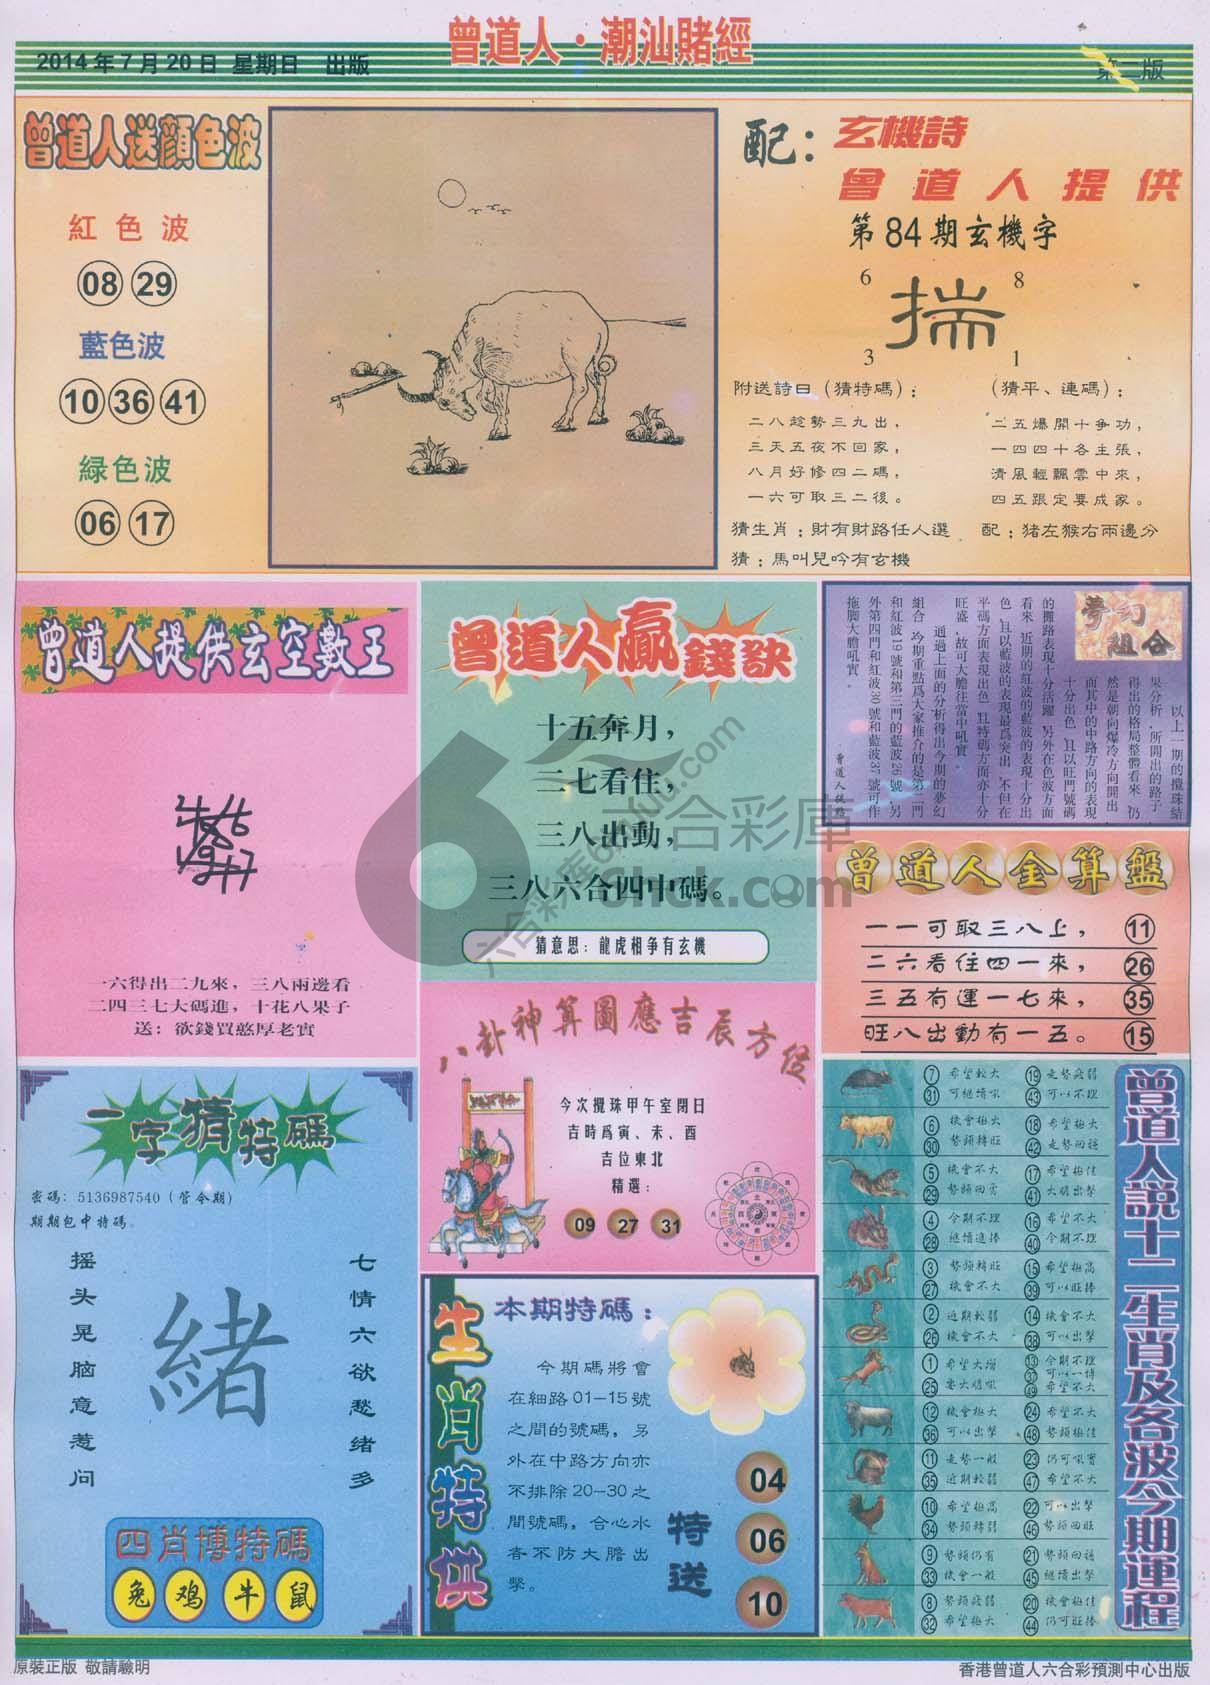 曾道人·潮汕賭經
2014年7月20日 星期日 出版
第二版
曾道人送顔色波
紅色波
08 29
藍色波
10 36 41
緑色波
06 17
配：
玄機詩
曾道人提供
第84期玄機字
6 8
揣
3 1
附送詩曰（猜特碼）：
二八趁勢三九出，
三天五夜不回家，
八月好修四二碼，
一六可取三二後。
（猜平、連碼）：
二五爆開十爭功，
一四四十各主張，
清風輕飄雲中來，
四五跟定要成家。
猜生肖：財有財路任人選
配：猪左猴右兩邊分
猜：馬叫兒吟有玄機
曾道人提供玄空數王
一六得出二九來，三八兩邊看
二四三七大碼進，十花八果子
送：欲錢買憨厚老實
曾道人贏錢訣
十五奔月，
二七看住，
三八出動，
三八六合四中碼。
猜意思：龍虎相争有玄機
夢幻
組合
以上一期的攪珠結
果分析，所開出的路子
得出的格局整體看來，仍
然是朝向爆冷方向開出，
而其中的中路方向的表現
十分出色，且以旺門號碼
的攤路表現十分活躍，另外在色波方面
看來，近期的紅波的藍波的表現十分出
色，且以藍波的表現最爲突出，不但在
平碼方面表現出色，且特碼方面亦十分
旺盛，故可大膽往當中吼實。
通過上面的分析得出今期的夢幻
組合，今期重點爲大家推介的是第二門
和紅波19號和第三門的藍波26號，另
外第四門和紅波30號和藍波37號可作
拖脚大膽吼實。
曾道人金算盤
一一可取三八上， 11
二六看住四一來， 26
三五有運一七來， 35
旺八出動有一五。 15
一字猜特碼
密碼：5136987540（管令期）
期期包中特碼。
摇头晃脑意惹问
緒
七情六欲愁绪多
四肖博特碼
兔 鸡 牛 鼠
八卦神算圖應吉辰方位
今次攪珠甲午室閉日
吉時爲寅、未、酉
吉位東北
精選：
09 27 31
生肖特供
本期特碼：
今期碼將會
在細路01-15號
之間的號碼，另
外在中路方向亦
不排除20-30之
間號碼，合心水
者不防大膽出
擊。
特送
04
06
10
曾道人説十二生肖及各波今期運程
7 希望較大 19 走勢疲弱
31 可繼續吼 43 可以不理
6 機會極大 18 希望極大
30 勢頭轉旺 42 走勢回穩
5 機會不大 17 希望極佳
29 勢頭回勇 41 大膽出擊
4 今期不理 16 希望不大
28 繼續追捧 40 今期不理
3 勢頭轉旺 15 希望極高
27 機會不大 39 可以旺捧
2 近期較弱 14 機會不大
26 機會不大 38 可以出擊
1 希望大增 13 今期不理
37 可以一博
25 要大膽吼 49 希望不大
12 機會極大 24 希望不大
36 可以出擊 48 勢頭極佳
11 走勢一般 23 仍可吼實
35 近期較弱 47 希望不大
10 希望極高 22 可以出擊
34 勢頭轉弱 46 勢頭回旺
9 勢頭仍有 21 勢頭回穩
33 機會一般 45 繼續出擊
8 勢頭疲弱 20 機會極佳
32 希望極大 44 仍可旺捧
六合彩庫
6hck.com
原裝正版 敬請驗明
香港曾道人六合彩預測中心出版